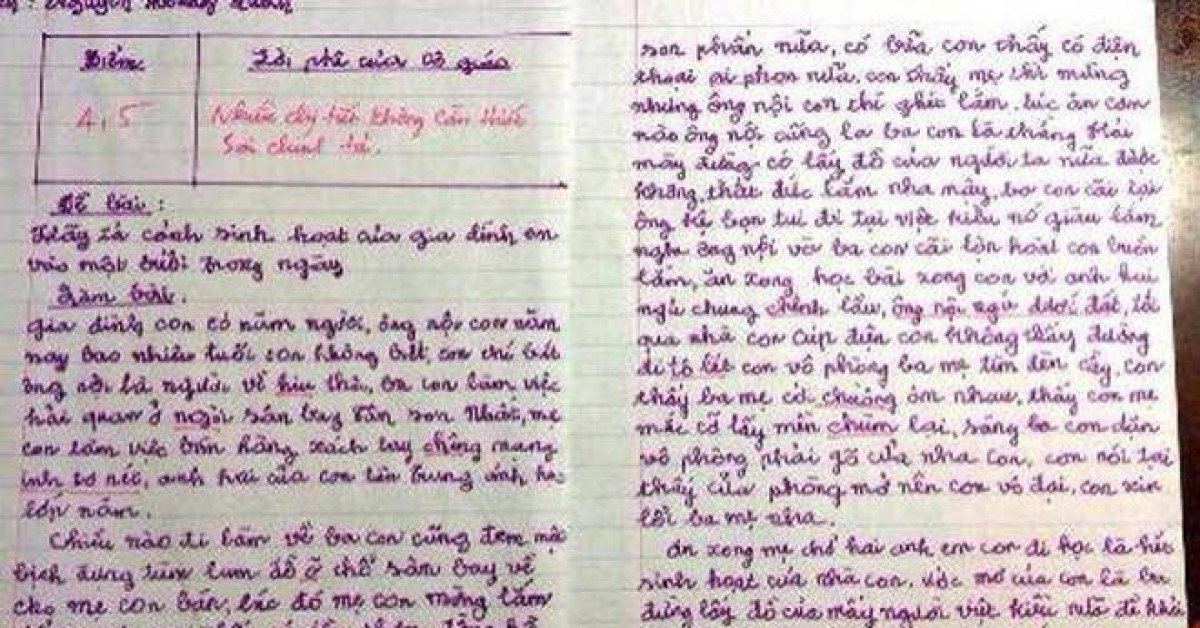 Nguyễn Hoàng
Điểm
Lời phê của cô giáo
4,5
Nhiều chi tiết không cần thiết
Sai chính tả.
Đề bài :
Hãy tả cảnh sinh hoạt của gia đình em
vào một buổi trong ngày
Làm bài.
gia đình con có năm người, ông nội con năm
nay bao nhiêu tuổi con không biết, con chỉ biết
ông nội là người về hiu thôi, ba con làm việc
hải quan ở ngời sân bay tân sơn Nhất, mẹ
con làm việc bán hàng xách tay chông mang
inh tơ nét, anh hai của con tên trung anh học
lớp năm.
Chiều nào đi làm về ba con cũng đem một
bịch đựng tùm lum đồ ở chổ sân bay về
cho mẹ con bán, lúc đó mẹ con mừng lắm
son phấn nữa, có bữa con thấy có điện
thoại ai phon nữa, con thấy mẹ thì mừng
nhưng ông nội con thì ghét lắm, lúc ăn cơm
nào ông nội cũng la ba con là thằng Hải
mày đừng có lấy đồ của người ta nữa được
không, thất đức lắm nha mậy, ba con cãi lại
ông kệ bọn tui đi tại việt kiều nó giàu lắm
nghe ông nội và ba con cãi lộn hoài con buồn
lắm, ăn xong học bài xong con với anh hai
ngủ chung chênh lầu, ông nội ngủ dưới đất, tối
qua nhà con cúp điện con không thấy đường
đi tô lét con vô phòng ba mẹ tìm đèn cầy, con
thấy ba mẹ cở chuồng ôm nhau, thấy con mẹ
mắc cỡ lấy mền chùm lại, sáng ba con dặn
vô phòng phải gõ cửa nha con, con nói tại
thấy cửa phòng mở nên con vô đại, con xin
lỗi ba mẹ nha.
ăn xong mẹ chở hai anh em con đi học là hết
sinh hoạt của nhà con, ước mơ của con là ba
đừng lấy đồ của mấy người việt kiều nữa để khỏi